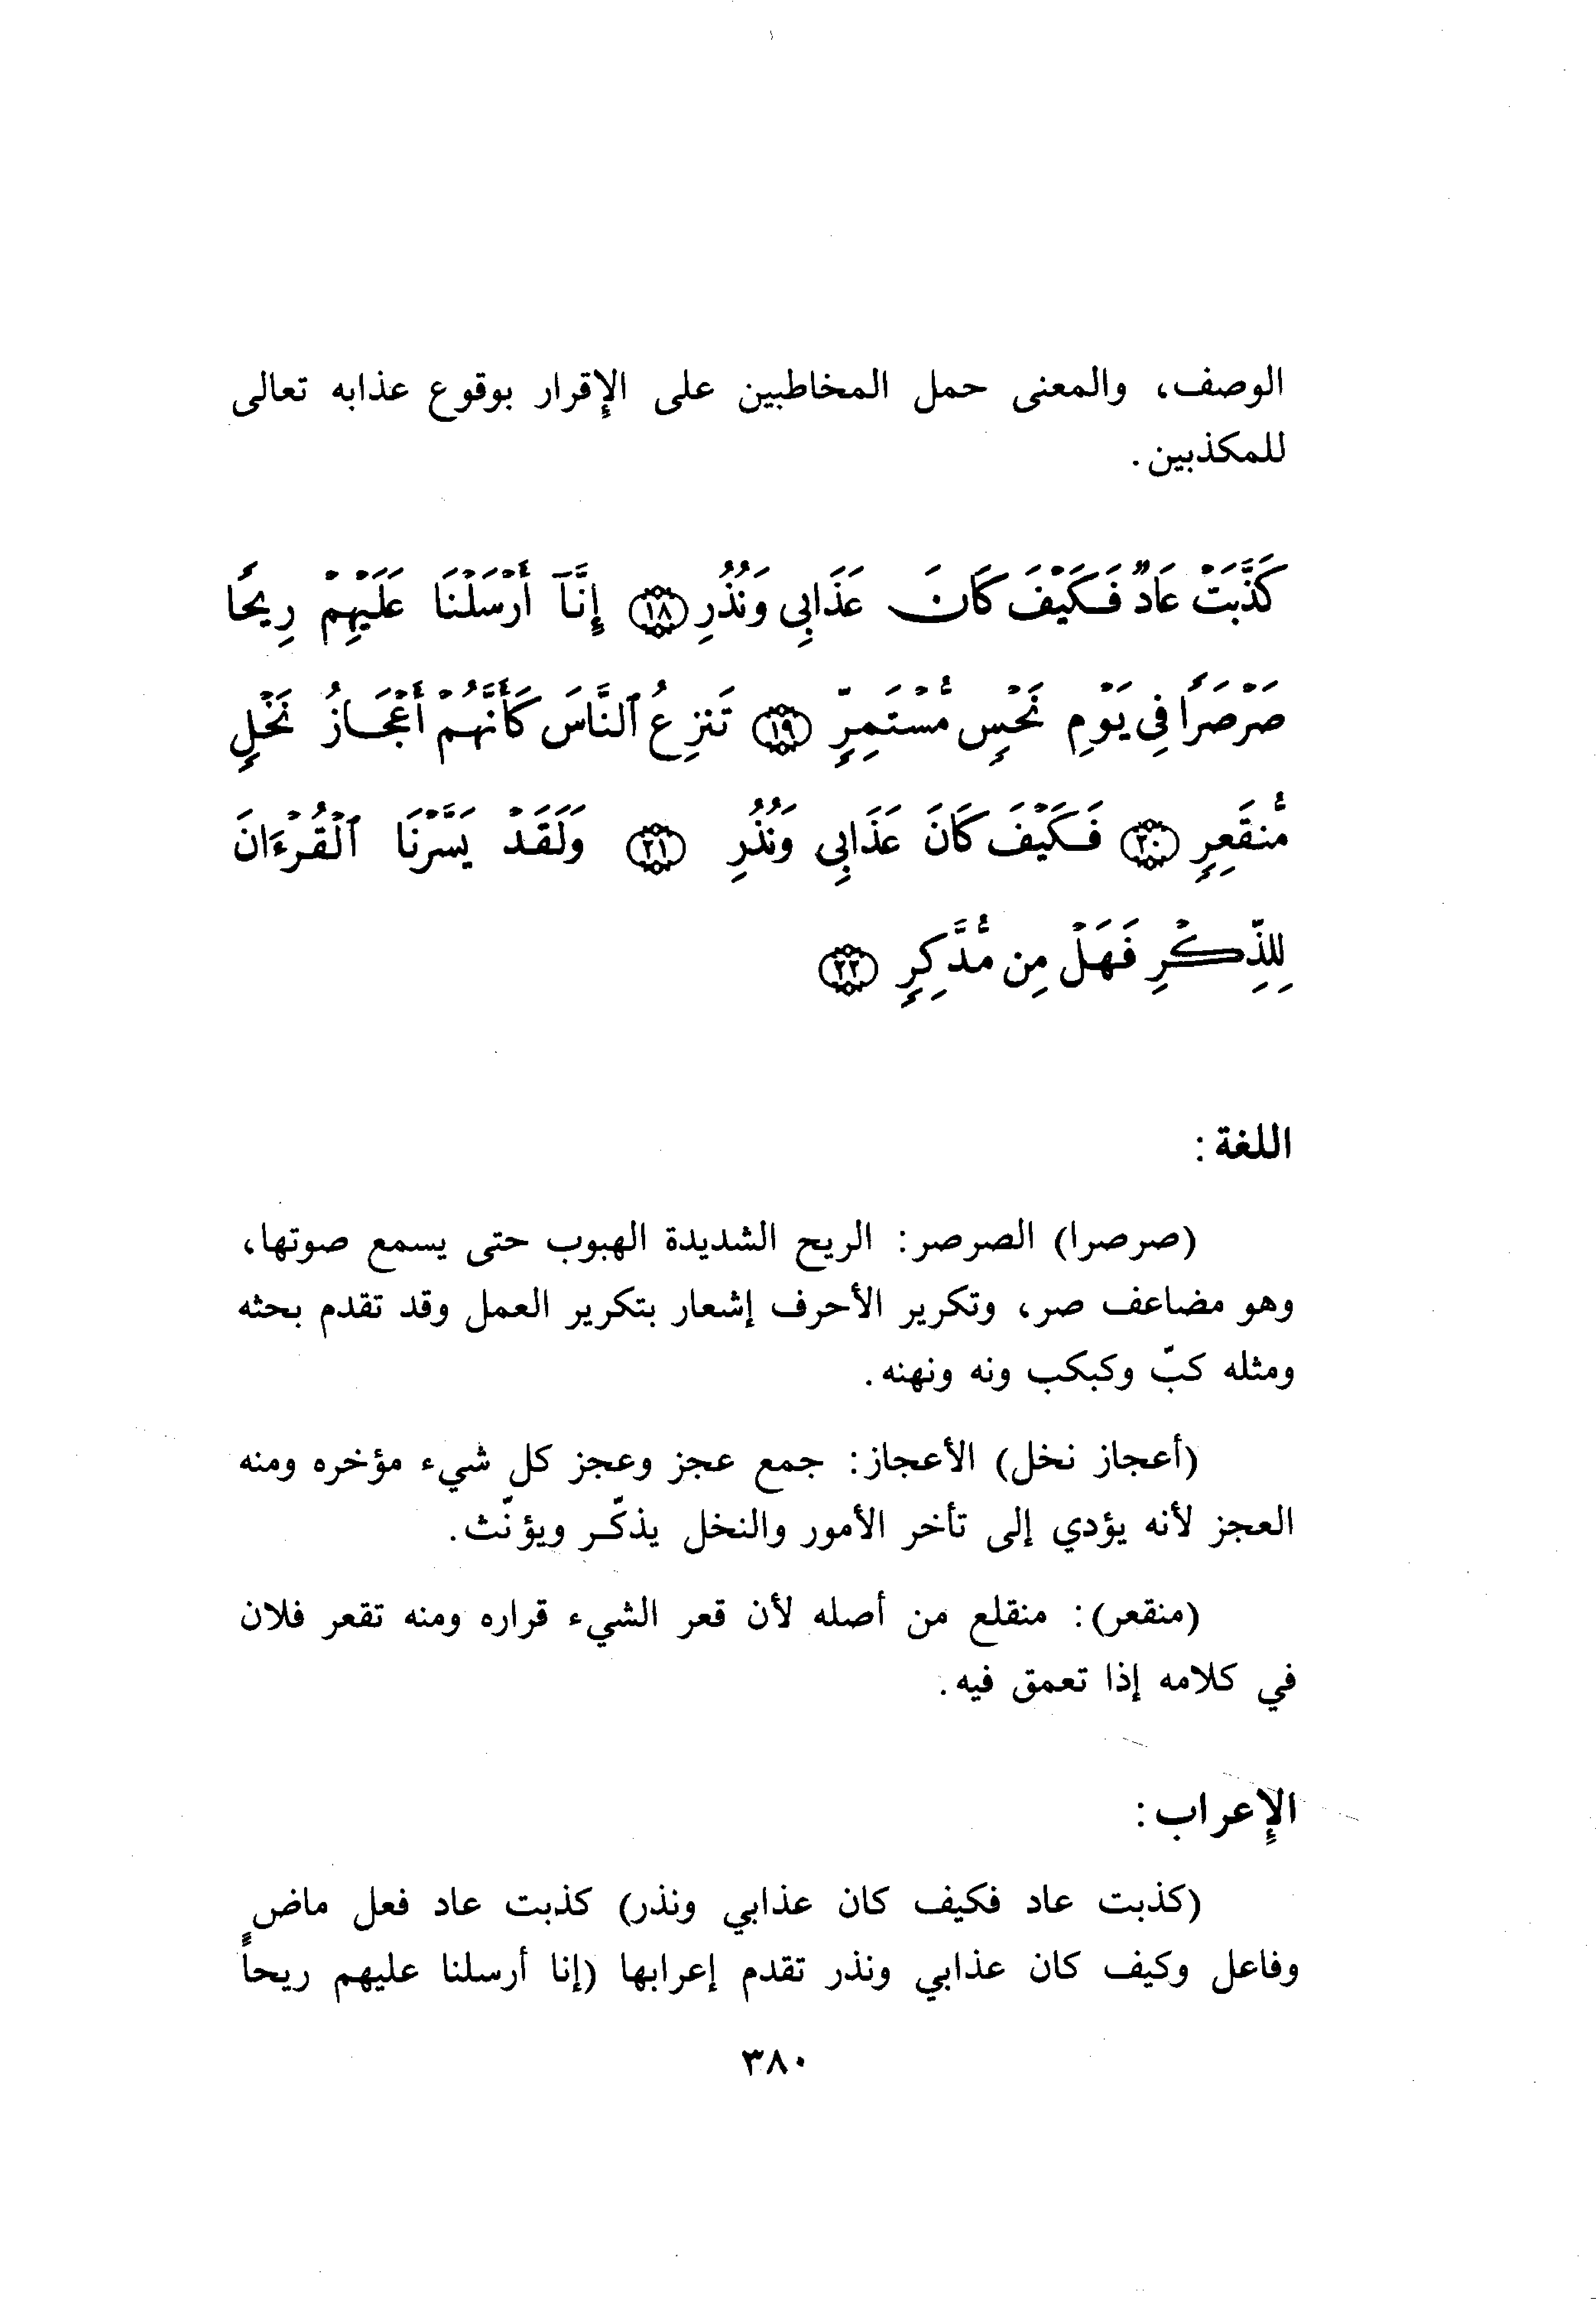 الوصف، والمعنى حمل المخاطبين على الإقرار بوقوع عذابه تعالى
للمكذبين.
كَذَّبَتْ عَادٌ فَكَيْفَ كَانَ عَذَابِي وَنُذُرِ ﴿١٨﴾ إِنَّآ أَرْسَلْنَا عَلَيْهِمْ رِيحًا
صَرْصَرًا فِي يَوْمِ نَحْسٍ مُّسْتَمِرٍّ ﴿١٩﴾ تَنزِعُ ٱلنَّاسَ كَأَنَّهُمْ أَعْجَازُ نَخْلٍ
مُّنقَعِرٍ ﴿٢٠﴾ فَكَيْفَ كَانَ عَذَابِي وَنُذُرِ ﴿٢١﴾ وَلَقَدْ يَسَّرْنَا ٱلْقُرْءَانَ
لِلذِّكْرِ فَهَلْ مِن مُّدَّكِرٍ ﴿٢٢﴾
اللغة:
(صرصرا) الصرصر: الريح الشديدة الهبوب حتى يسمع صوتها،
وهو مضاعف صر، وتكرير الأحرف إشعار بتكرير العمل وقد تقدم بحثه
ومثله كبّ وكبكب ونه ونهنه.
(أعجاز نخل) الأعجاز: جمع عجز وعجز كل شيء مؤخره ومنه
العجز لأنه يؤدي إلى تأخر الأمور والنخل يذكّر ويؤنّث.
(منقعر): منقلع من أصله لأن قعر الشيء قراره ومنه تقعر فلان
في كلامه إذا تعمق فيه.
الإعراب:
(كذبت عاد فكيف كان عذابي ونذر) كذبت عاد فعل ماضٍ
وفاعل وكيف كان عذابي ونذر تقدم إعرابها (إنا أرسلنا عليهم ريحاً
٣٨٠